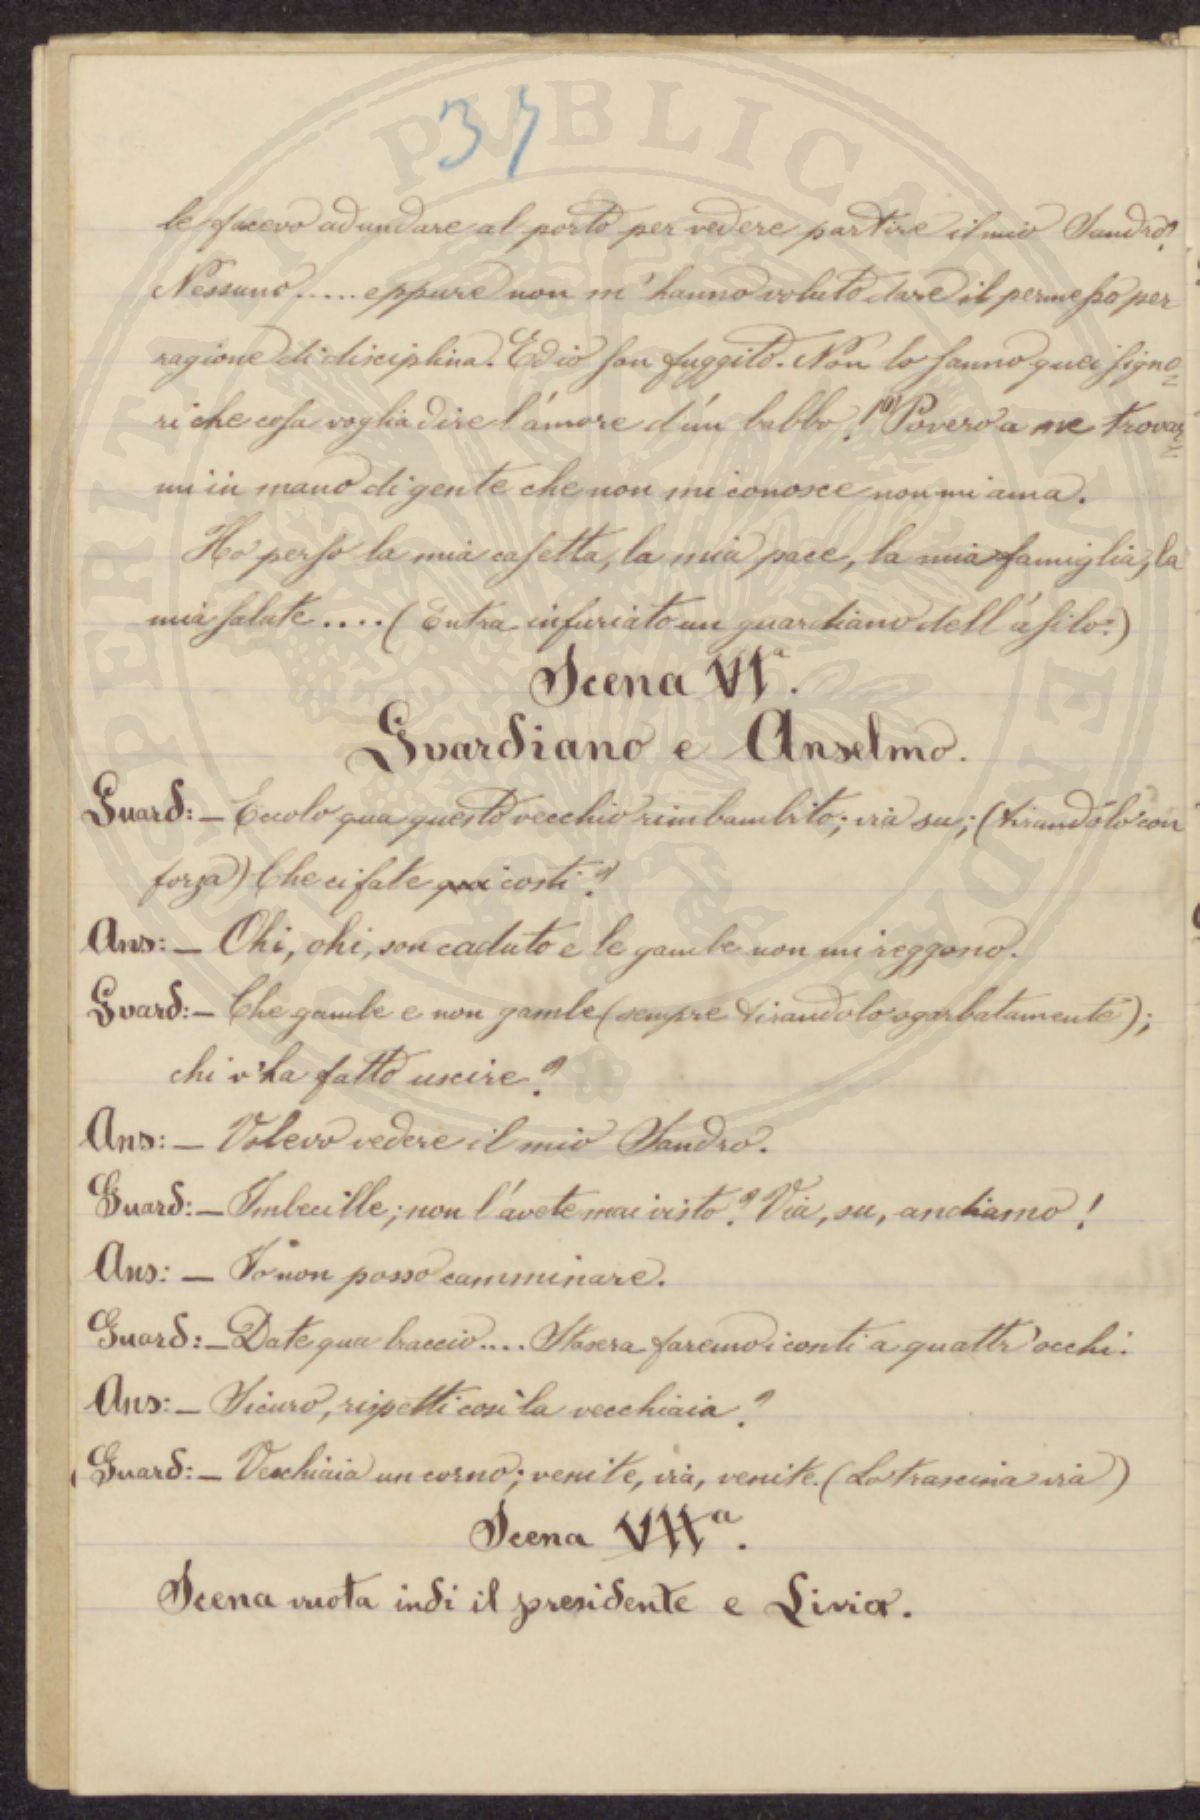 37
le facevo ad andare al porto per vedere partire il mio Sandro?
Nessuno..... eppure non m'hanno voluto dare il permesso per
ragione di disciplina. Ed io son fuggito. Non lo sanno quei signo=
ri che cosa voglia dire l'amore d'un babbo! Povero a me trovar=
mi in mano di gente che non mi conosce non mi ama.
Ho perso la mia casetta, la mia pace, la mia famiglia, la
mia salute.... (Entra infuriato un guardiano dell'asilo.)
Scena VIª.
Guardiano e Anselmo.
Guard: — Eccolo qua questo vecchio rimbambito; via su; (tirandolo con
forza) Che ci fate qui costi?
Ans: — Ohi, ohi, son caduto e le gambe non mi reggono.
Guard: — Che gambe e non gambe (sempre tirandolo sgarbatamente);
chi v'ha fatto uscire?
Ans: — Volevo vedere il mio Sandro.
Guard: — Imbecille; non l'avete mai visto? Via, su, andiamo!
Ans: — Io non posso camminare.
Guard: — Date qua braccio.... Stasera faremo i conti a quattr'occhi.
Ans: — Sicuro, rispetti così la vecchiaia?
Guard: — Vecchiaia un corno; venite, via, venite. (Lo trascina via)
Scena VIIª.
Scena vuota indi il presidente e Livia.
PERITI PUBLICAE VENDU